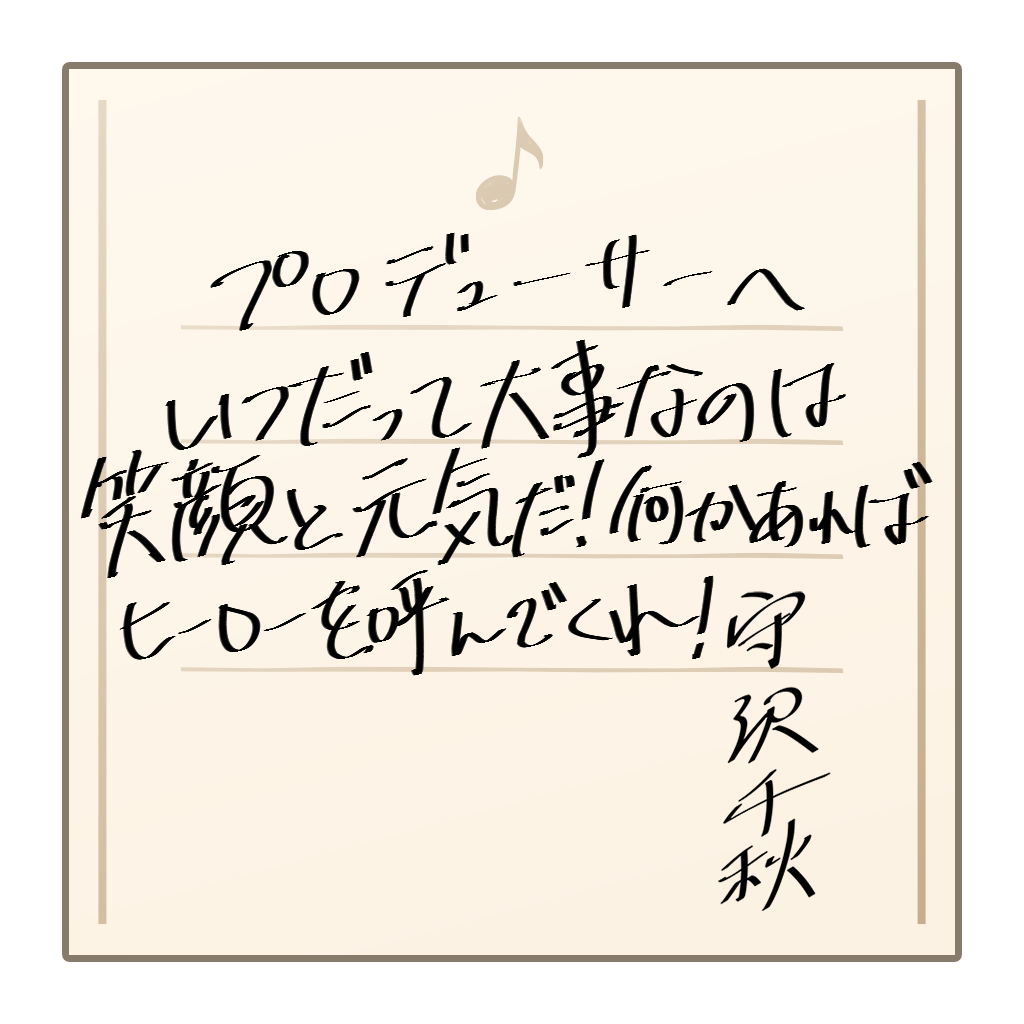 プロデューサーへ
いつだって大事なのは
笑顔と元気だ!何かあれば
ヒーローを呼んでくれ!
守沢千秋